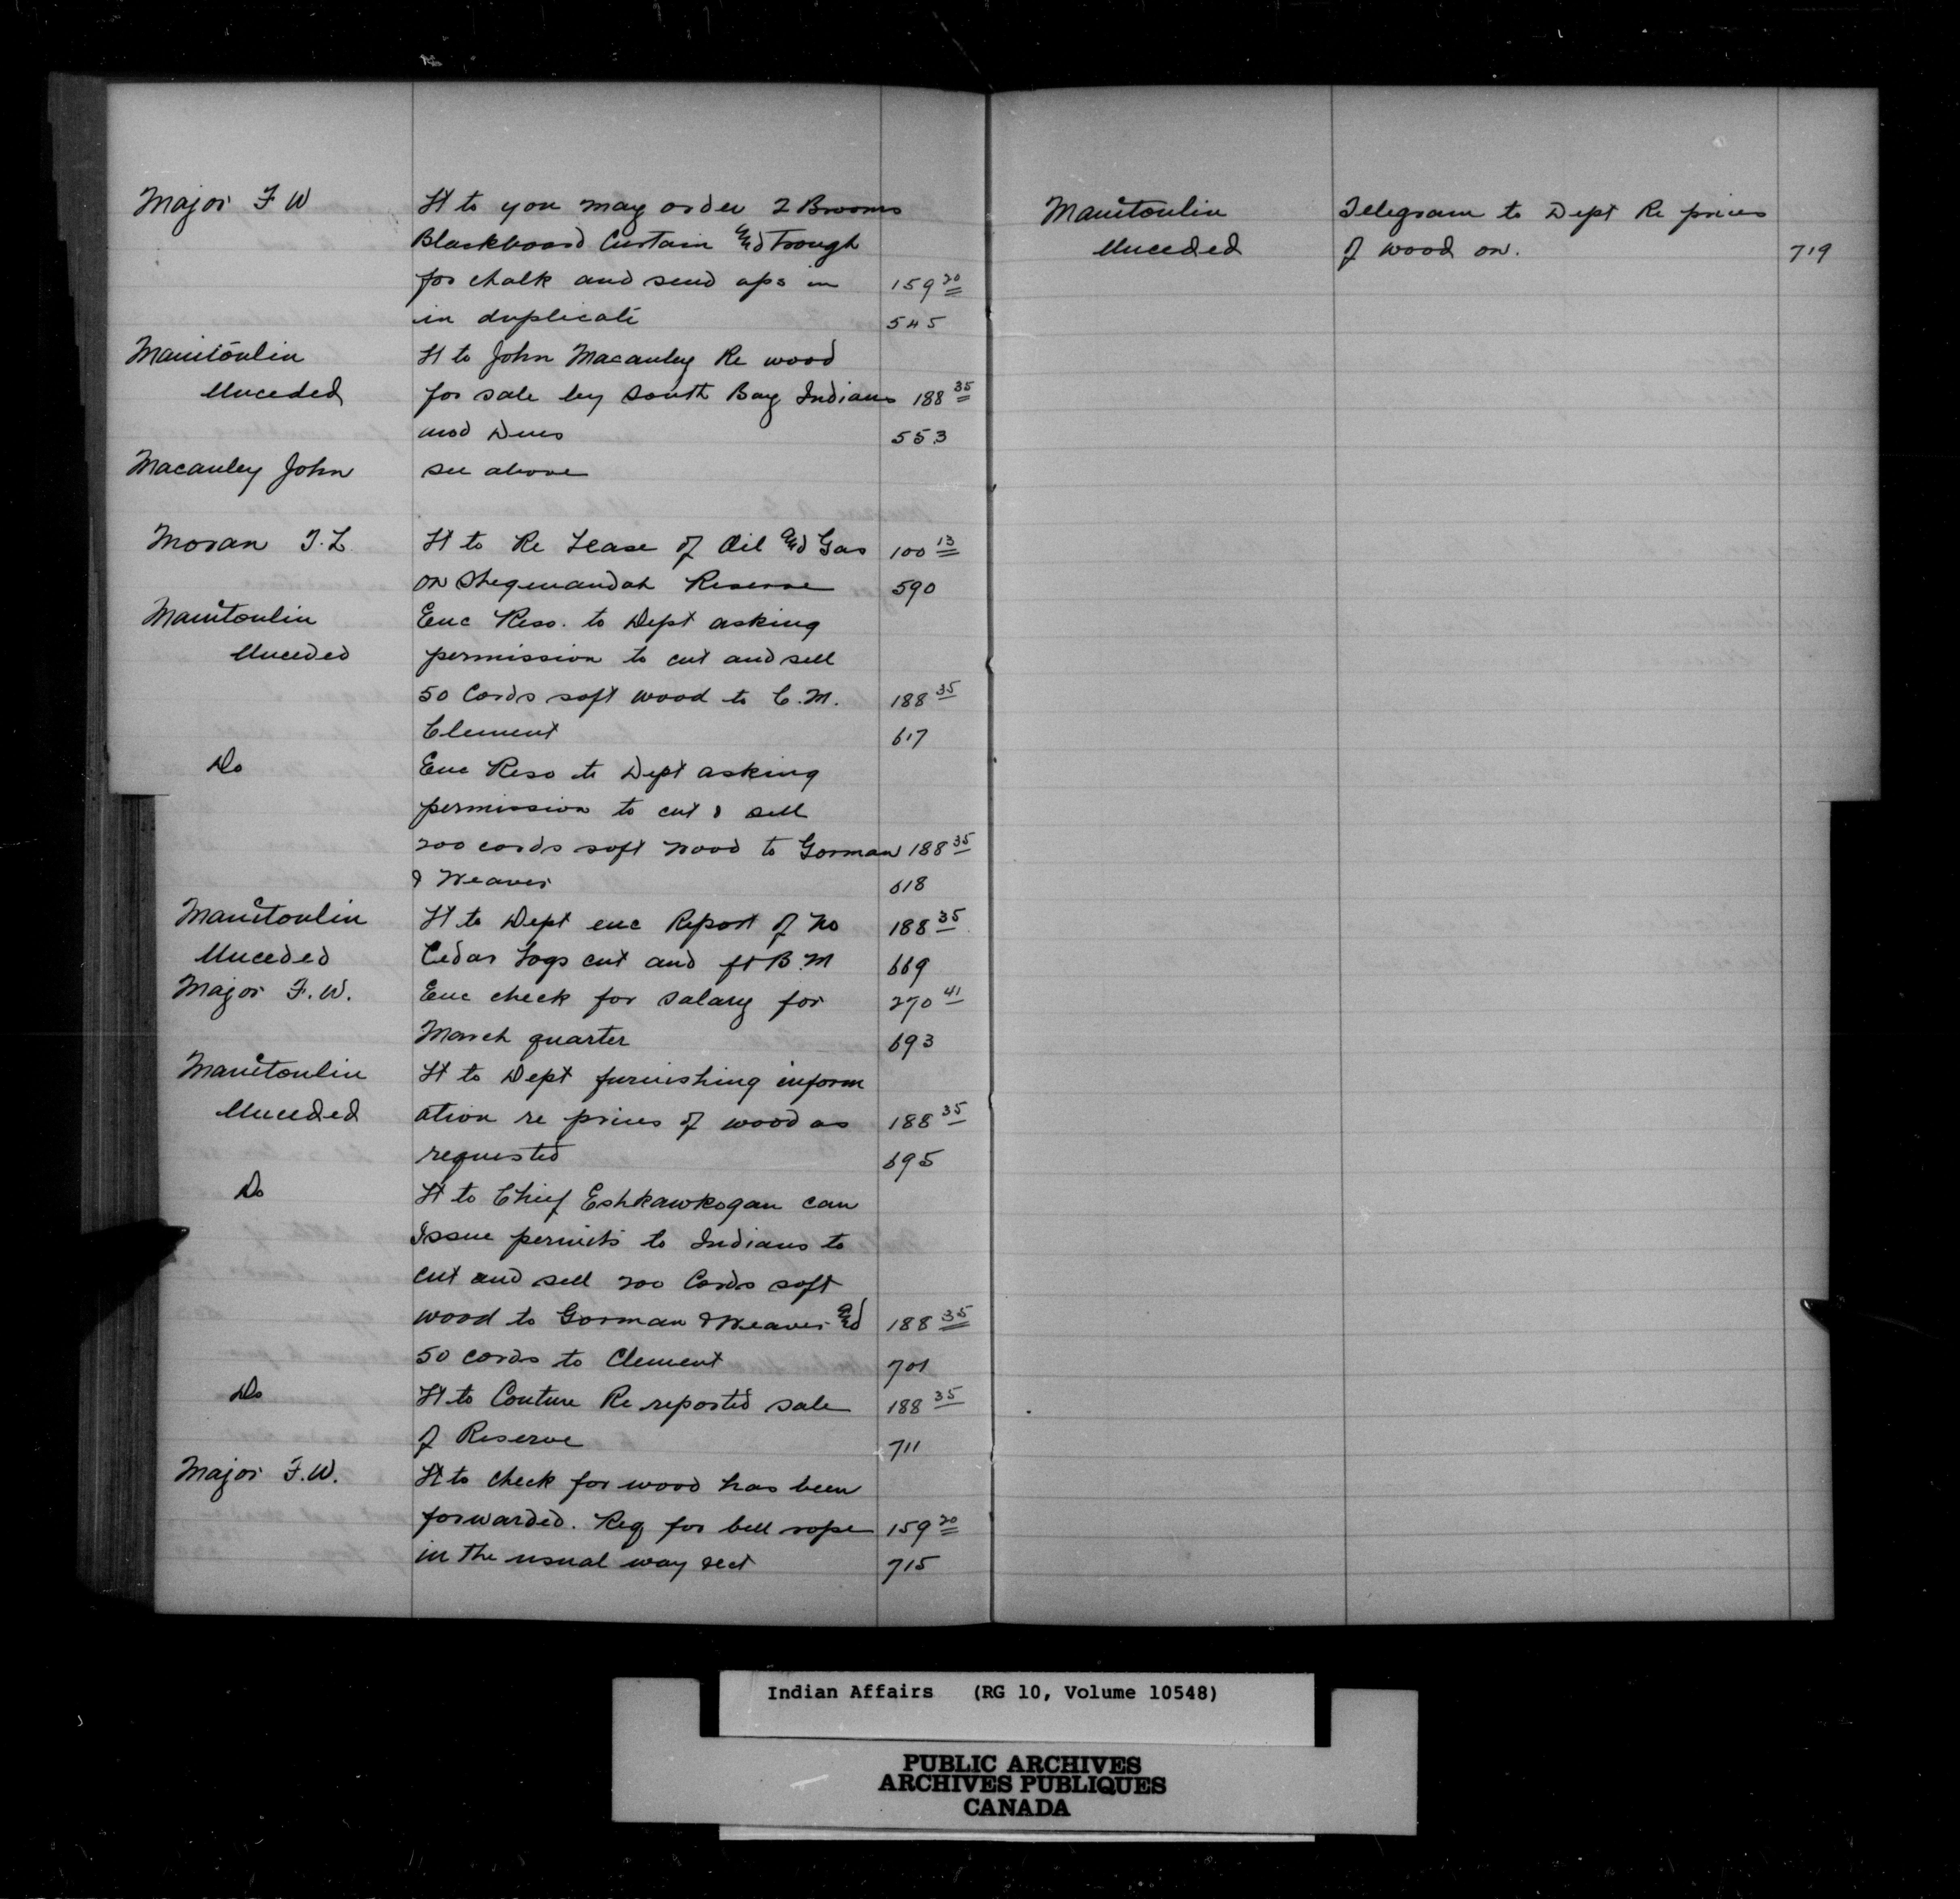 Major F W Lt to you may order 2 Brooms
Blackboard Curtain and trough
for chalk and send aps in 159 20
in duplicate 545
Manitoulin Lt to John Macauley Re wood
Unceded for sale by South Bay Indians 188 35
and Dues 553
Macauley John see above
Moran T. L. Lt to Re Lease of Oil and Gas 100 13
on Sheguiandah Reserve 590
Manitoulin Enc Reso. to Dept asking
Unceded permission to cut and sell
50 Cords soft wood to C. M. 188 35
Clement 617
Do Enc Reso to Dept asking
permission to cut & sell
200 cords soft wood to Gorman 188 35
& Weaver 618
Manitoulin Lt to Dept enc Report of No 188 35
Unceded Cedar Logs cut and ft B.M 669
Major F. W. Enc check for salary for 270 41
March quarter 693
Manitoulin Lt to Dept furnishing inform
Unceded ation re prices of wood as 188 35
requested 695
Do Lt to Chief Eshkawkogan can
Issue permits to Indians to
cut and sell 200 Cords soft
wood to Gorman & Weaver and 188 35
50 cords to Clement 701
Do Lt to Couture Re reported sale 188 35
of Reserve 711
Major F. W. Lt to check for wood has been
forwarded. Req for bell rope 159 20
in the usual way 715
Manitoulin Telegram to Dept Re prices
Unceded of wood on. 719
Indian Affairs (RG 10, Volume 10548)
PUBLIC ARCHIVES
ARCHIVES PUBLIQUES
CANADA